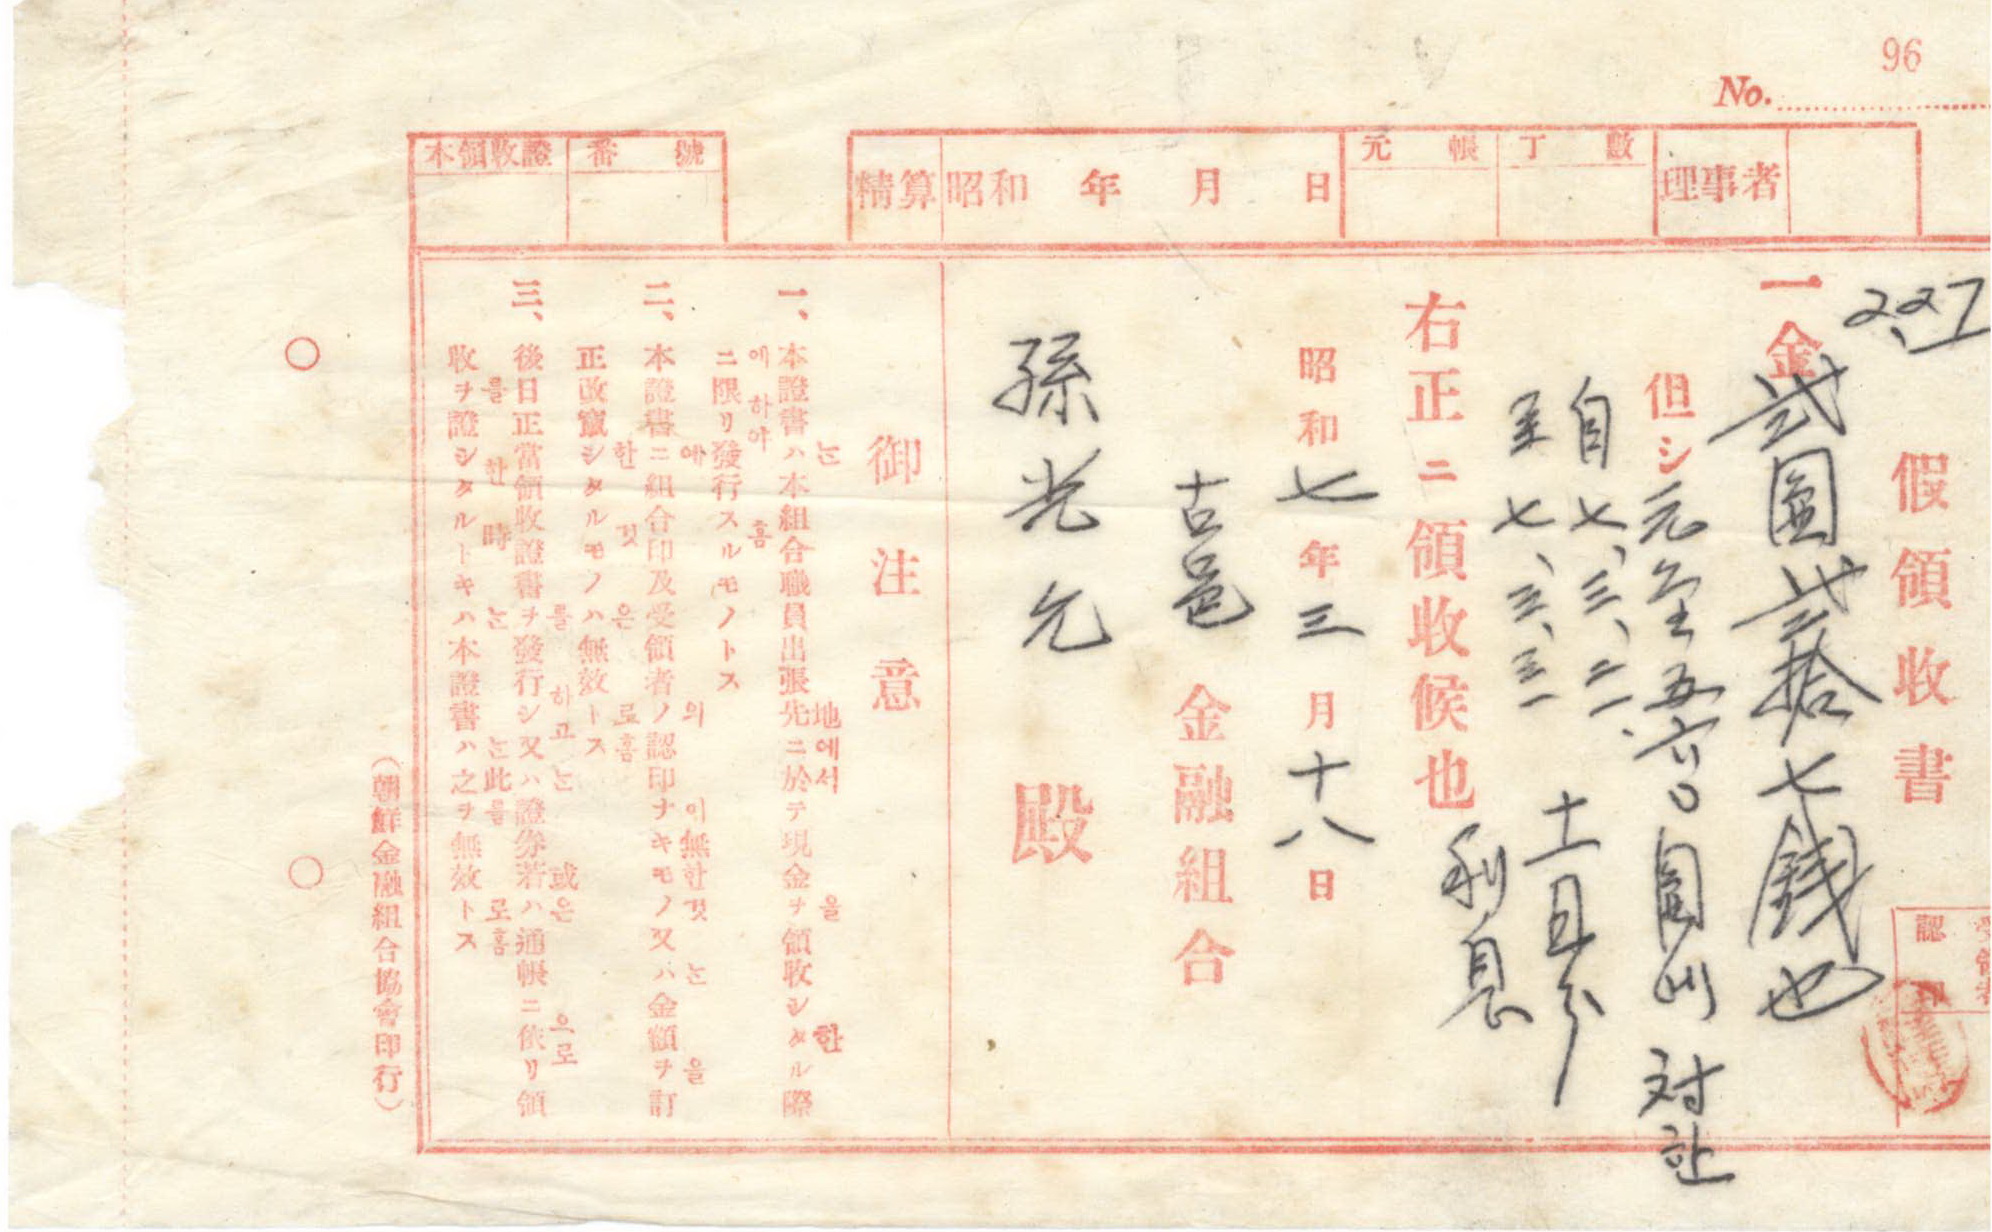 96
No.
理事者
元帳丁數
精算昭和 年 月 日
番號
本領收證
假領收書
受領者
認印
2.27
一金貳圓貳拾七錢也
但シ元金五六〇圓也 対 한
自七、三、二一、
至七、三、三一
十一日分
利息
右正ニ領收候也
昭和七年三月十八日
古邑金融組合
孫光允殿
御注意
는 地에서 을 한
一、本證書ハ本組合職員出張先ニ於テ現金ヲ領收シタル際
에하야 홈
ニ限リ發行スルモノトス
에 의 이無한것 는 을
二、本證書ニ組合印及受領者ノ認印ナキモノ又ハ金額ヲ訂
한것은 로홈
正改竄シタルモノハ無效トス
를 하고는 或은 으로
三、後日正當領收證書ヲ發行シ又ハ證券若ハ通帳ニ依リ領
를 한時는 는此를 로홈
收ヲ證シタルトキハ本證書ハ之ヲ無效トス
(朝鮮金融組合協會印行)